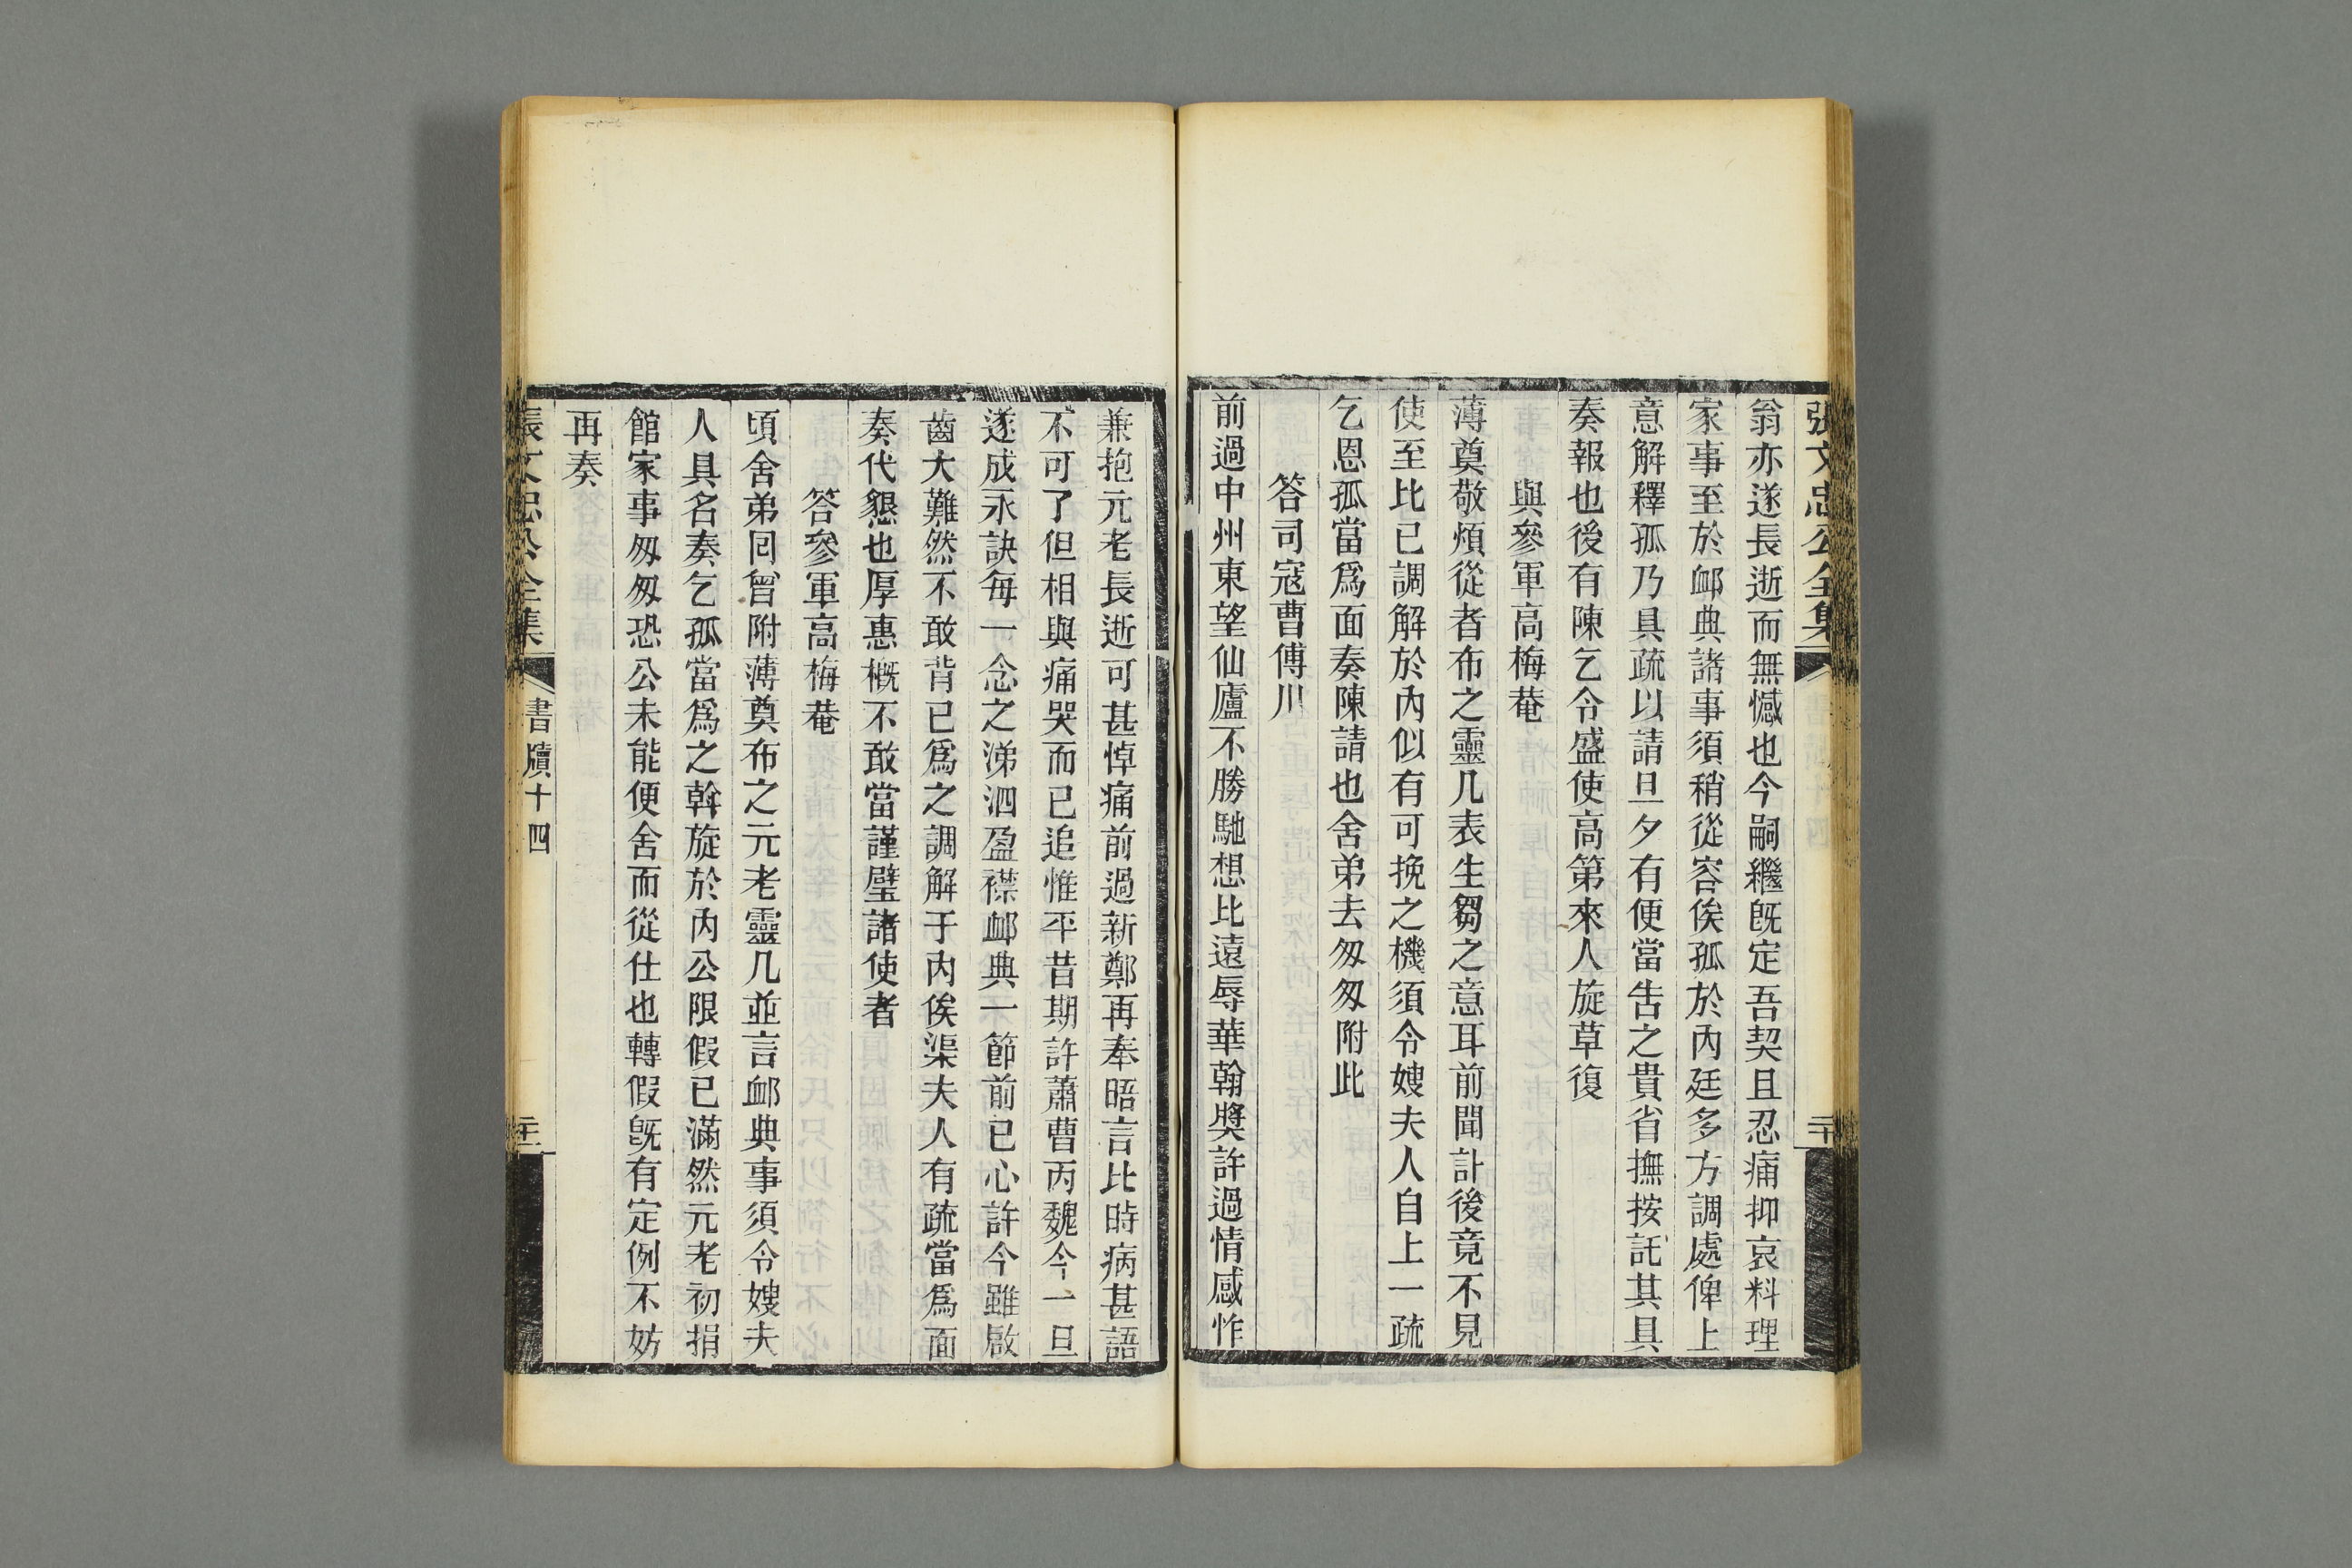 張文忠公全集 二十
翁亦遂長逝而無憾也今嗣繼旣定吾契且忍痛抑哀料理
家事至於䘏典諸事須稍從容俟孤於內廷多方調處俾上
意解釋孤乃具疏以請旦夕有便當告之貴省撫按託其具
奏報也後有陳乞令盛使高第來人旋草復
與參軍高梅菴
薄奠敬煩從者布之靈几表生芻之意耳前聞訃後竟不見
使至比已調解於內似有可挽之機須令嫂夫人自上一疏
乞恩孤當爲面奏陳請也舍弟去匆匆附此
答司寇曹傅川
前過中州東望仙廬不勝馳想比遠辱華翰獎許過情感怍
兼抱元老長逝可甚悼痛前過新鄭再奉晤言比時病甚語
不可了但相與痛哭而已追惟平昔期許蕭曹丙魏今一旦
遂成永訣每一念之涕泗盈襟䘏典一節前已心許今雖啟
齒大難然不敢背已爲之調解于內俟渠夫人有疏當爲面
奏代懇也厚惠概不敢當謹璧諸使者
答參軍高梅菴
頃舍弟囘曾附薄奠布之元老靈几並言䘏典事須令嫂夫
人具名奏乞孤當爲之斡旋於內公限假已滿然元老初捐
館家事匆匆恐公未能便舍而從仕也轉假旣有定例不妨
再奏
張文忠公全集 書牘十四 二十一